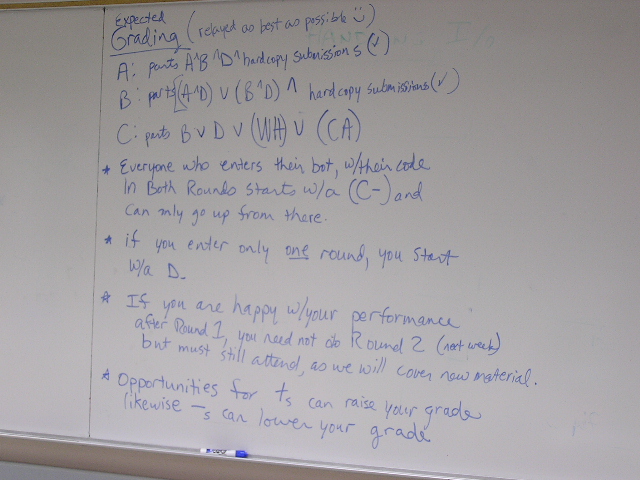 Expected
Grading (relayed as best as possible ☺)
A: parts A^B^D^hardcopy submissions (✓)
B: parts [(A^D) ∨ (B^D) ^ hardcopy submissions (✓)
C: parts B ∨ D ∨ (WA) ∨ (CA)
* Everyone who enters their bot, w/their code
In Both Rounds starts w/a (C-) and
can only go up from there.
* if you enter only one round, you start
w/a D.
* If you are happy w/your performance
after Round 1, you need not do Round 2 (next week)
but must still attend, as we will cover new material.
* Opportunities for +s can raise your grade
likewise -s can lower your grade